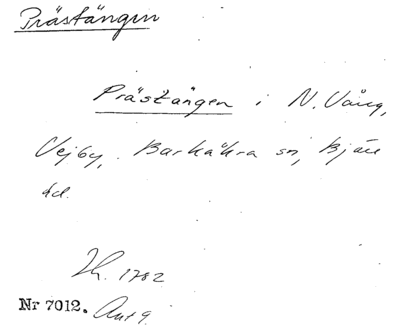 Prästängen
Prästängen i N. Vång,
Vejby, Barkåkra sn, Bjäre
hd.
1782
Nr 7012.